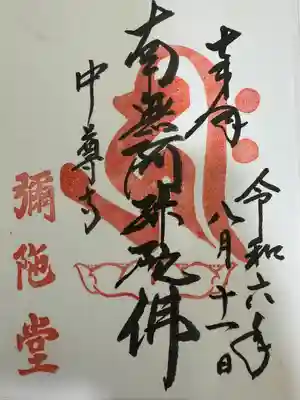 奉拝
令和六年
八月十一日
南無阿弥陀佛
中尊寺
彌陀堂